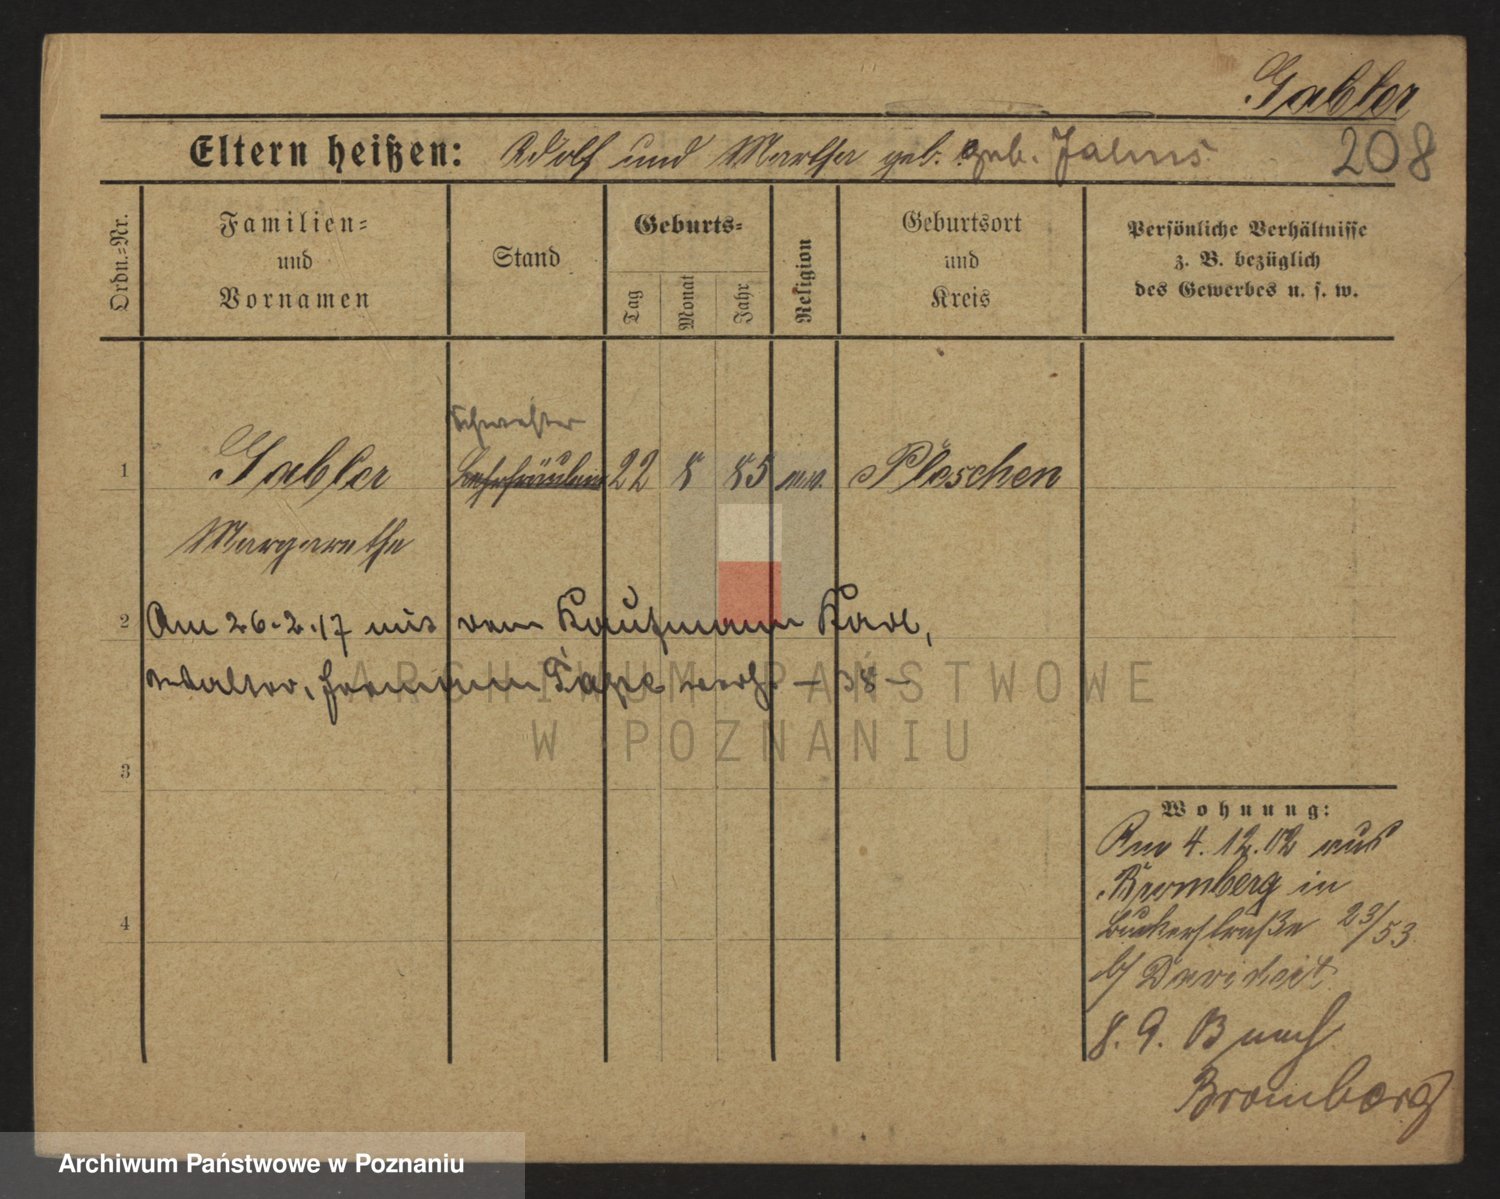 Gabler
208
Eltern heißen: Adolf und Martha geb. geb. Jahns
Ordn.-Nr.
Familien-
und
Vornamen
Stand
Geburts-
Tag
Monat
Jahr
Religion
Geburtsort
und
Kreis
Persönliche Verhältnisse
z. B. bezüglich
des Gewerbes u. s. w.
Schwester
1 Gabler Lehrfräulein 22 8 85 Pleschen
Margarethe
2 Am 26.2.17 mit dem Kaufmann Karl,
Walter, Hermann verh. - 38 -
3
4
Wohnung:
Am 4. 12. 02 aus
Bromberg in
Bäckerstraße 23/53
b/
8. 9. nach
Bromberg
ARCHIWUM PAŃSTWOWE
W POZNANIU
Archiwum Państwowe w Poznaniu